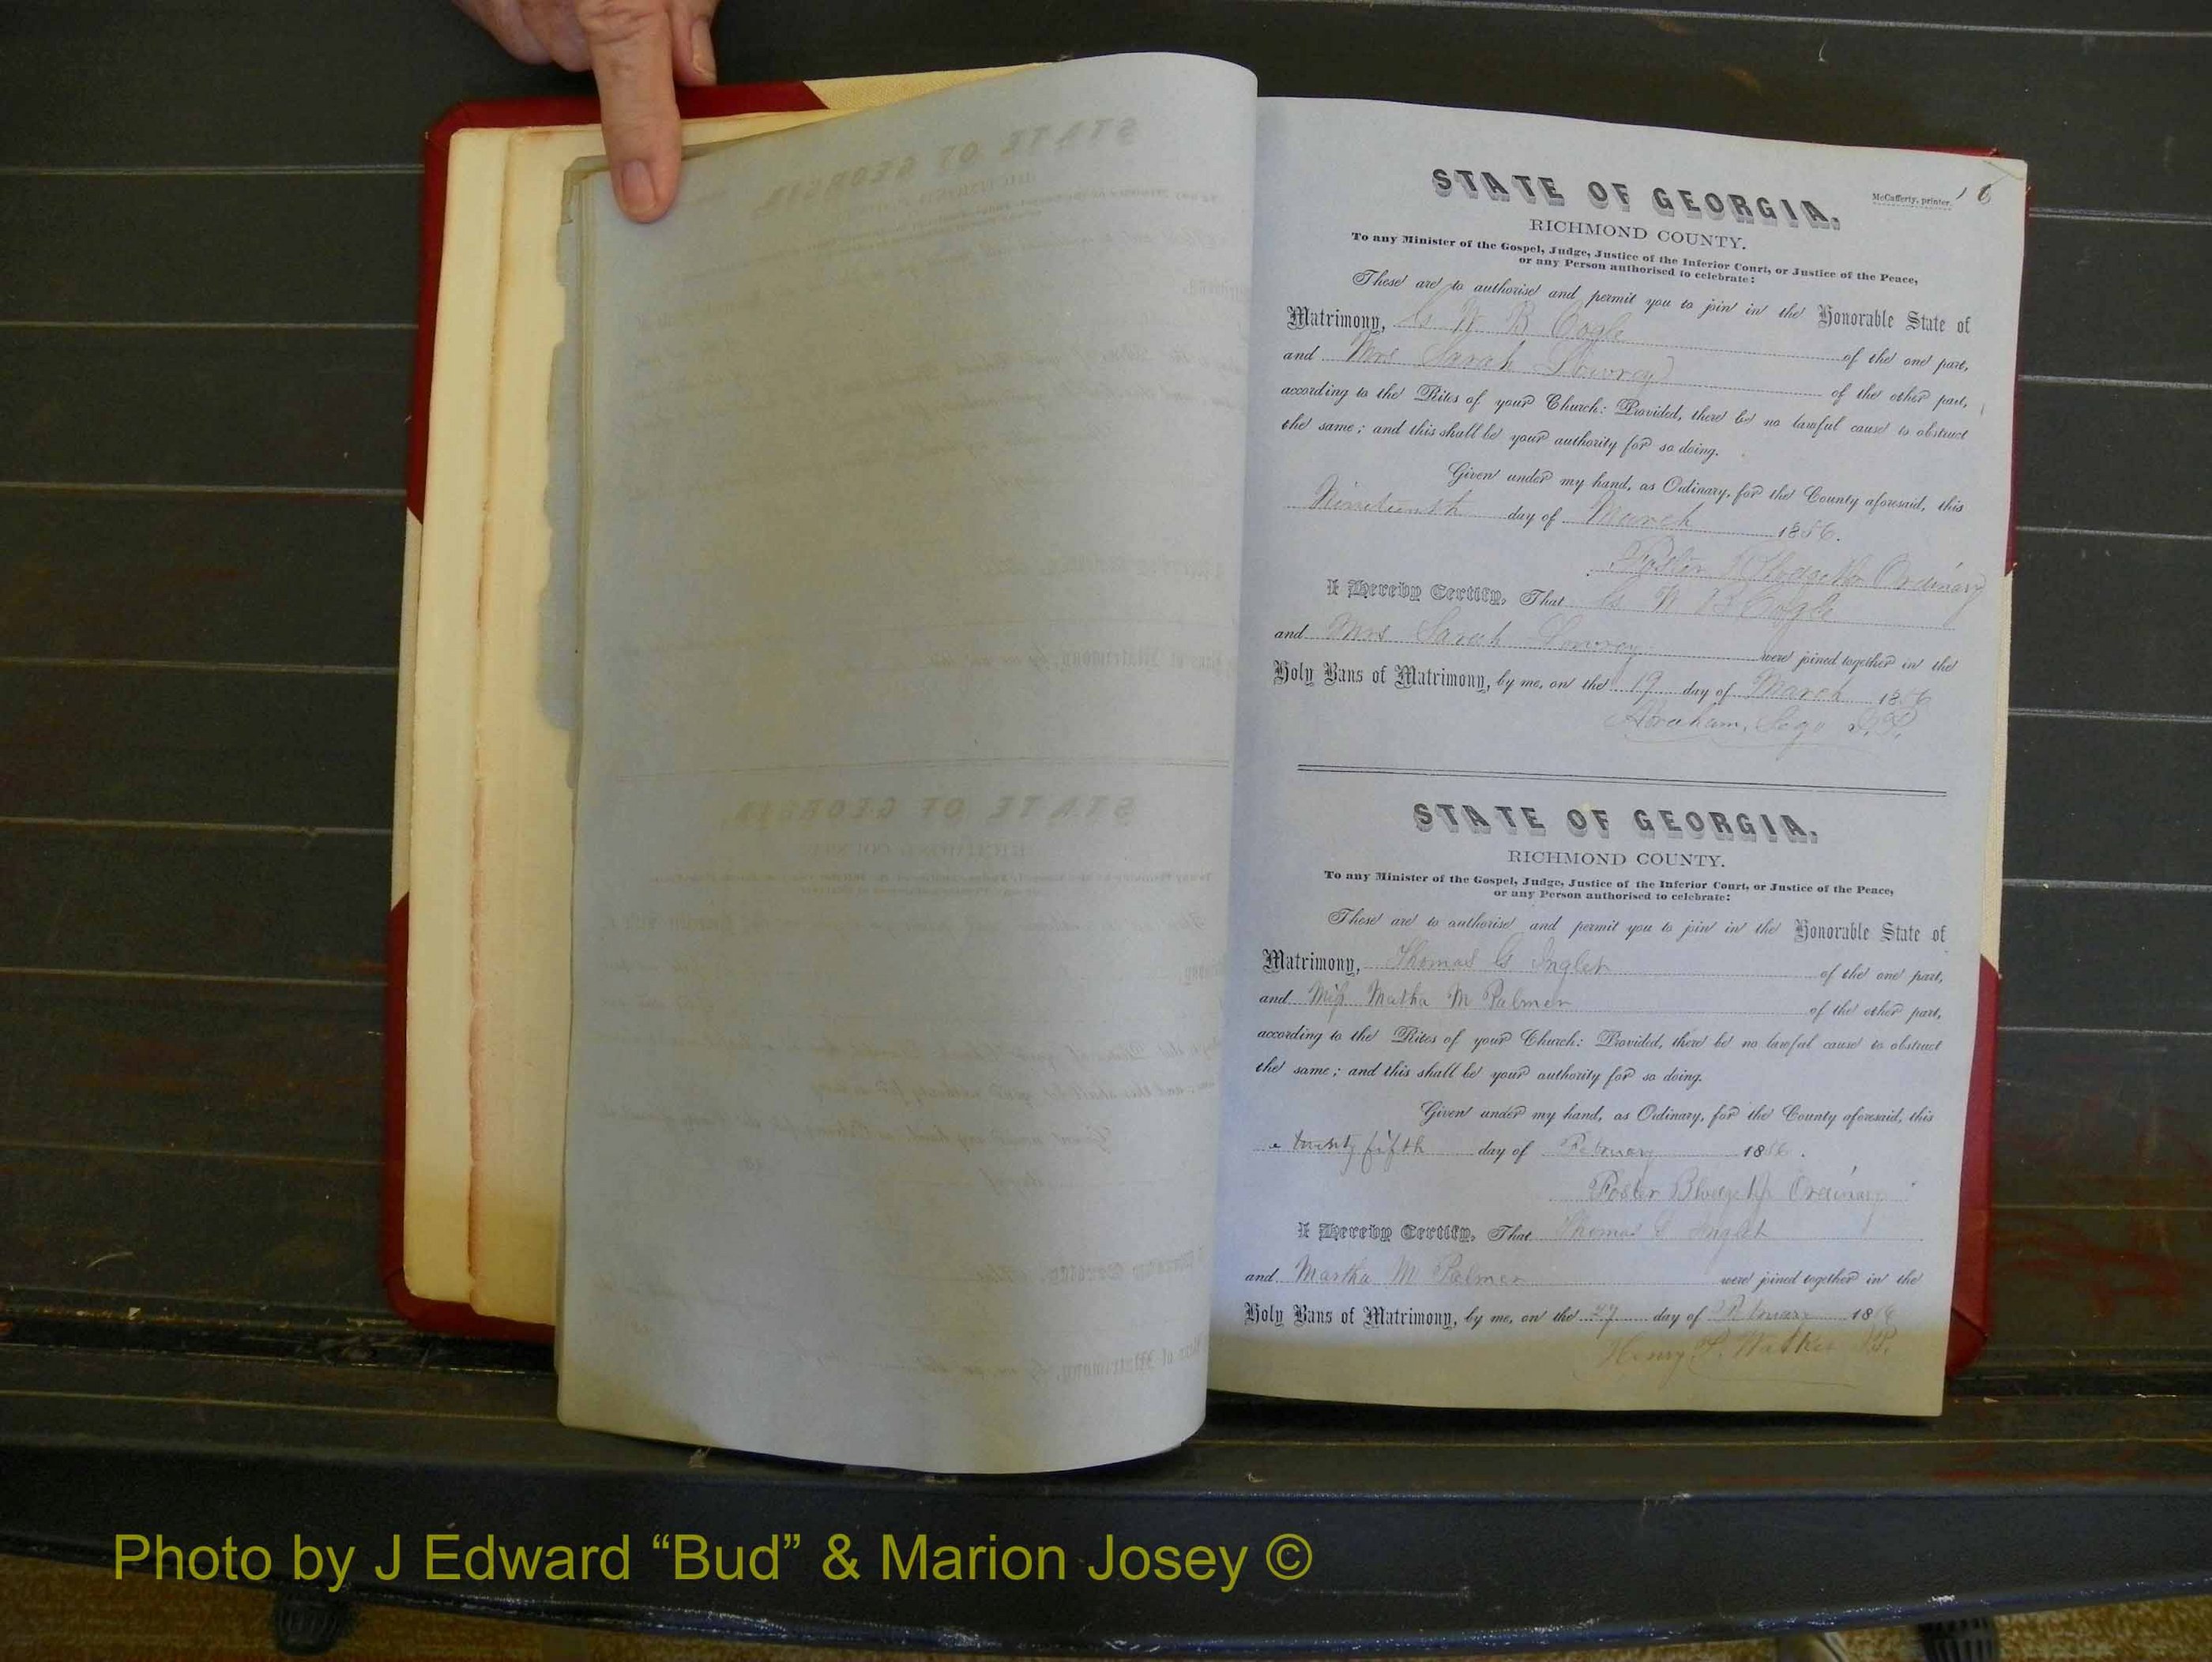 STATE OF GEORGIA.
McCafferty, printer.
RICHMOND COUNTY.
To any Minister of the Gospel, Judge, Justice of the Inferior Court, or Justice of the Peace,
or any Person authorised to celebrate:
These are to authorise and permit you to join in the Honorable State of
Matrimony, G W B Cogle of the one part,
and Mrs Sarah of the other part,
according to the Rites of your Church: Provided, there be no lawful cause to obstruct
the same; and this shall be your authority for so doing.
Given under my hand, as Ordinary, for the County aforesaid, this
Nineteenth day of March 1856.
Foster Blodget Jr Ordinary
I Hereby Certify, That G W B Cogle
and Mrs Sarah were joined together in the
Holy Bans of Matrimony, by me, on the 19 day of March 1856
Abraham
STATE OF GEORGIA.
RICHMOND COUNTY.
To any Minister of the Gospel, Judge, Justice of the Inferior Court, or Justice of the Peace,
or any Person authorised to celebrate:
These are to authorise and permit you to join in the Honorable State of
Matrimony, Thomas G Inglet of the one part,
and Miss Matha M Palmer of the other part,
according to the Rites of your Church: Provided, there be no lawful cause to obstruct
the same; and this shall be your authority for so doing.
Given under my hand, as Ordinary, for the County aforesaid, this
twenty fifth day of February 1856.
Foster Blodget Jr Ordinary
I Hereby Certify, That Thomas G Inglet
and Martha M Palmer were joined together in the
Holy Bans of Matrimony, by me, on the 27 day of February 1856
Henry P. Watkins
Photo by J Edward “Bud” & Marion Josey ©